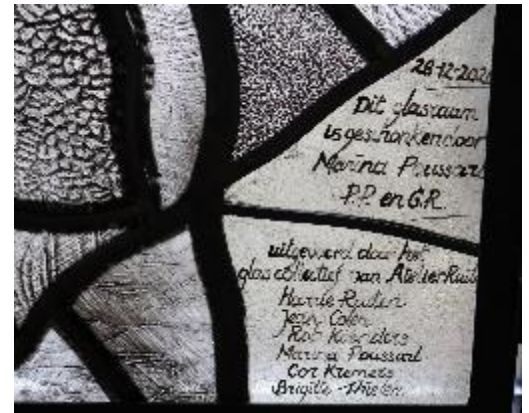 28-12-202
Dit glasraam
is geschonken door
Marina Poussart
P.P. en G.R.
uitgevoerd door het
glascollectief van Atelier
Harrie Ruten
Jean Colen
Rob
Marina Poussart
Cor Kremers
Brigitte Thielen